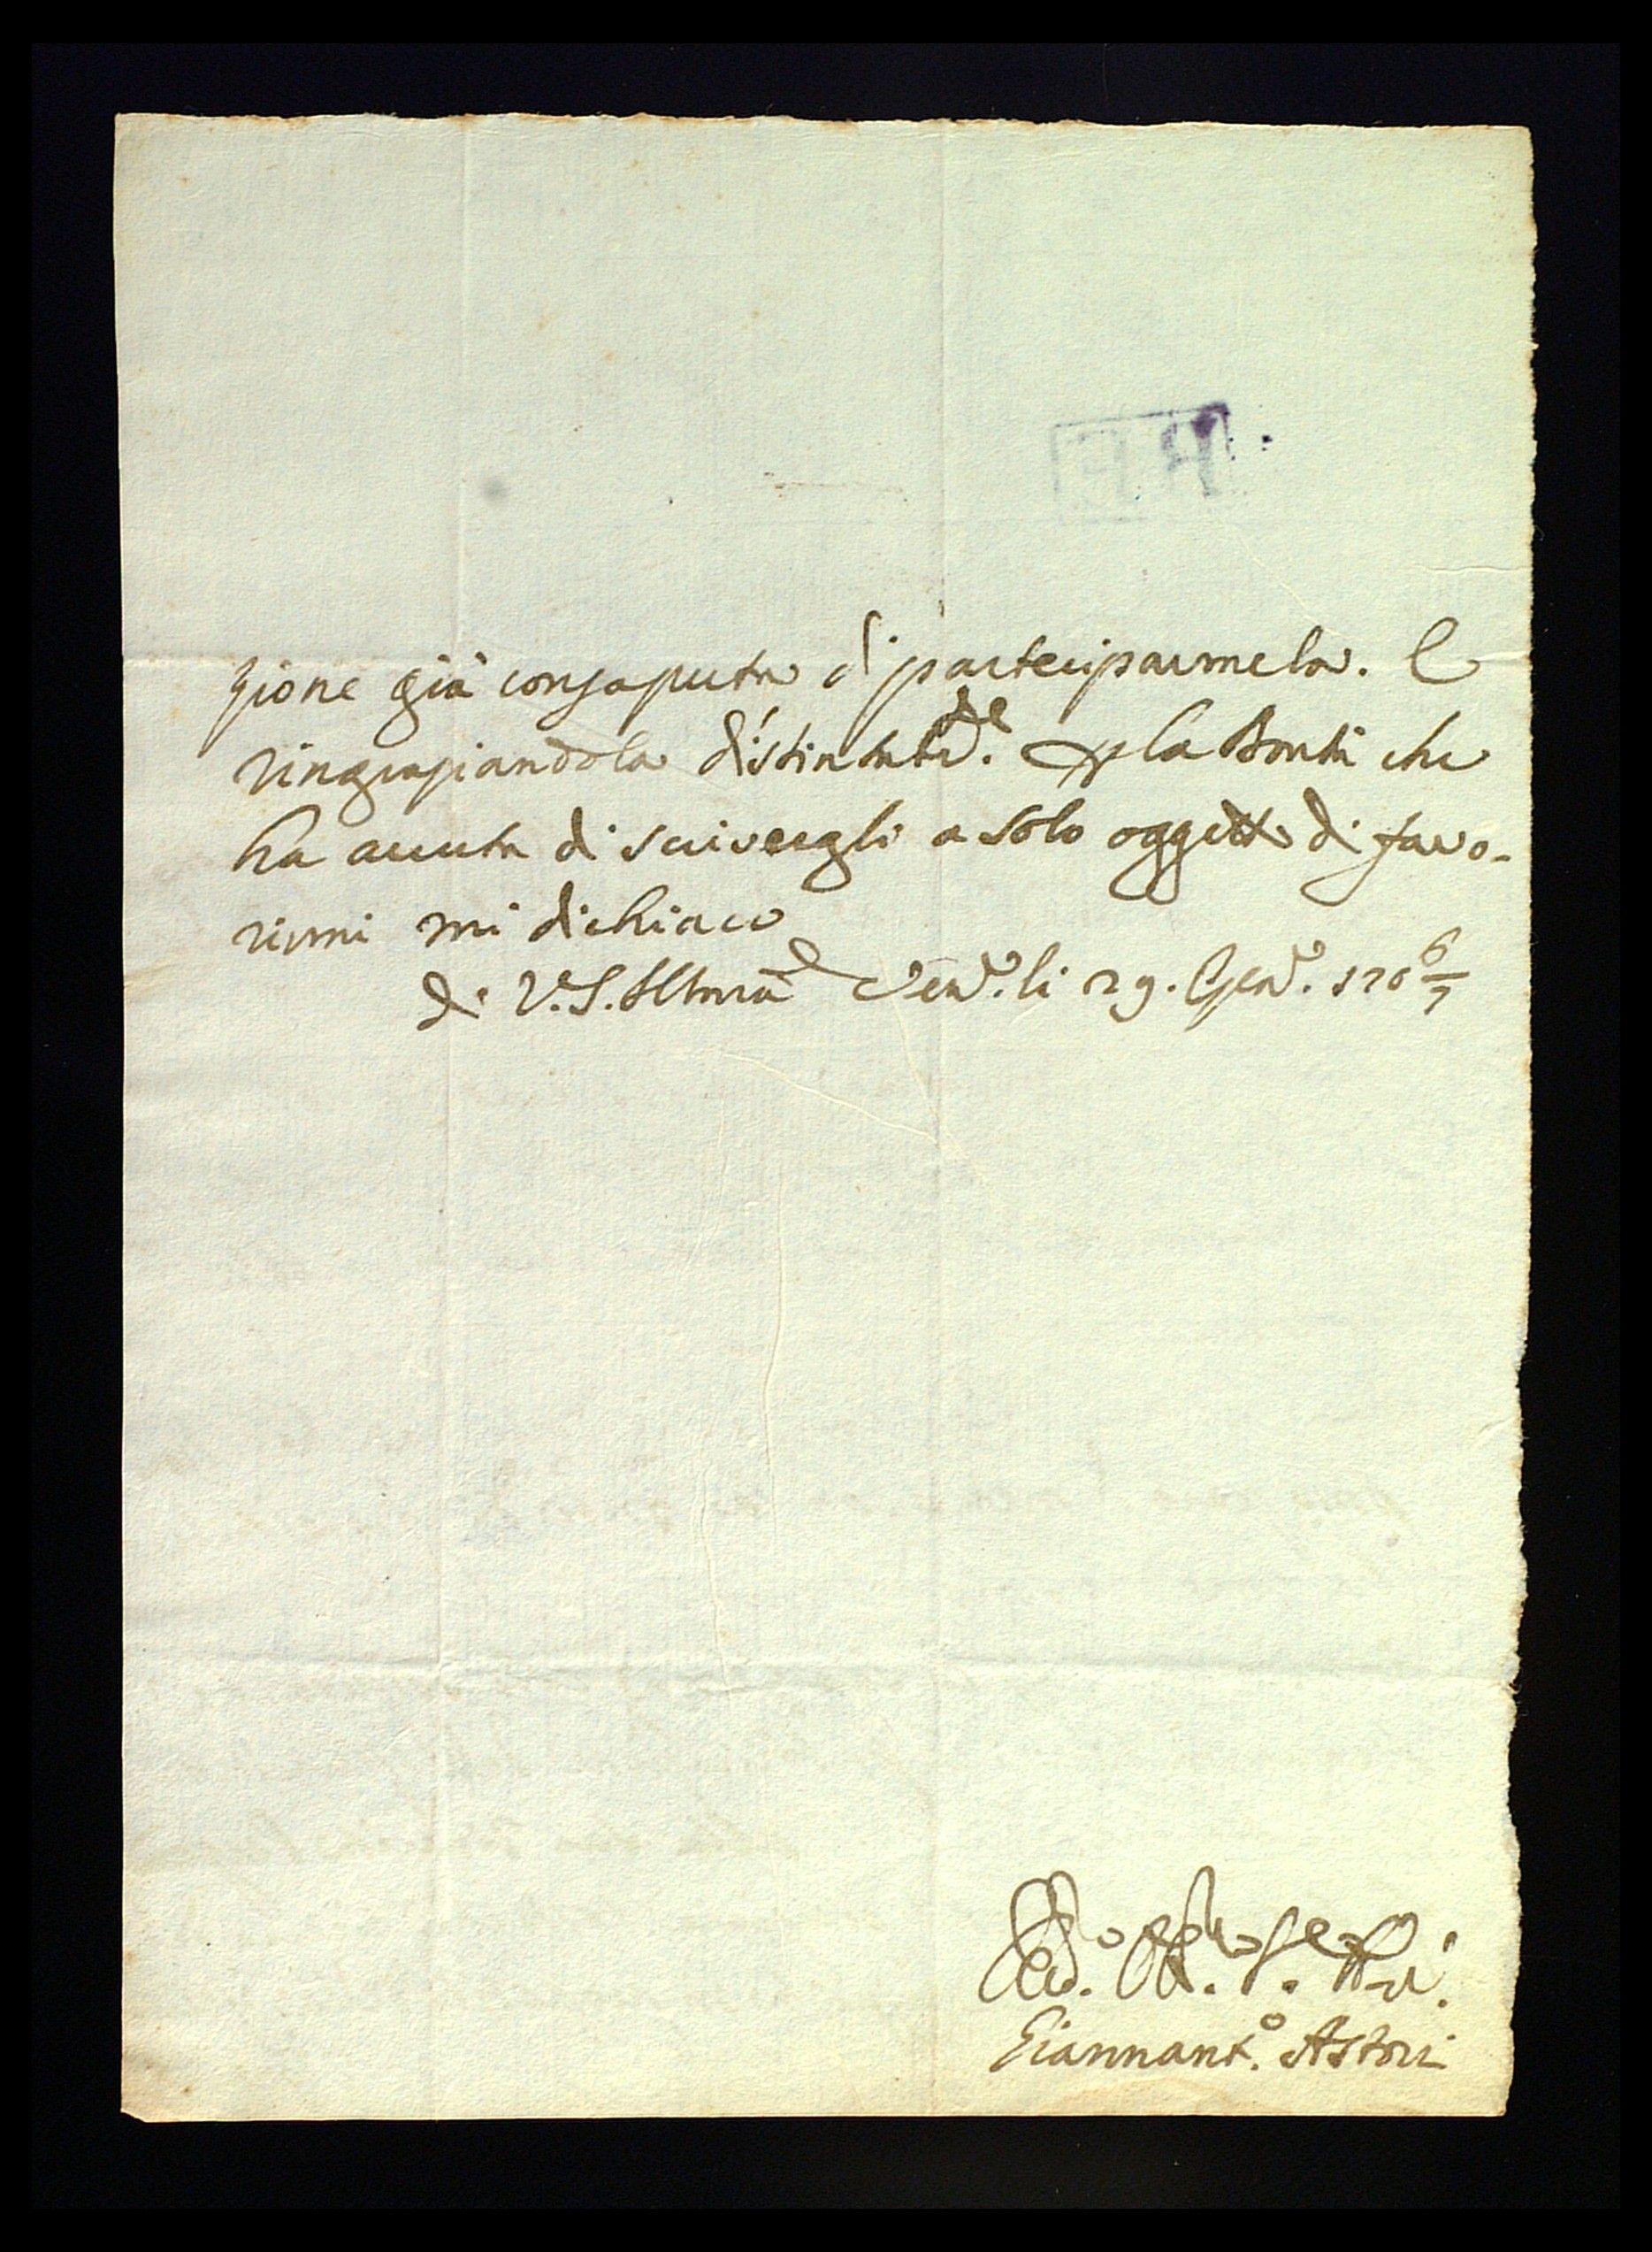 zione già consaputa di parteciparmela. E
ringraziandola distintam.te per la Bontà che
ha avuta di scrivergli a solo oggetto di favo-
rirmi mi dichiaro
di V.S. Illma Ven.a li 29. Gen.o 170 6/7
Giannant.o Astori